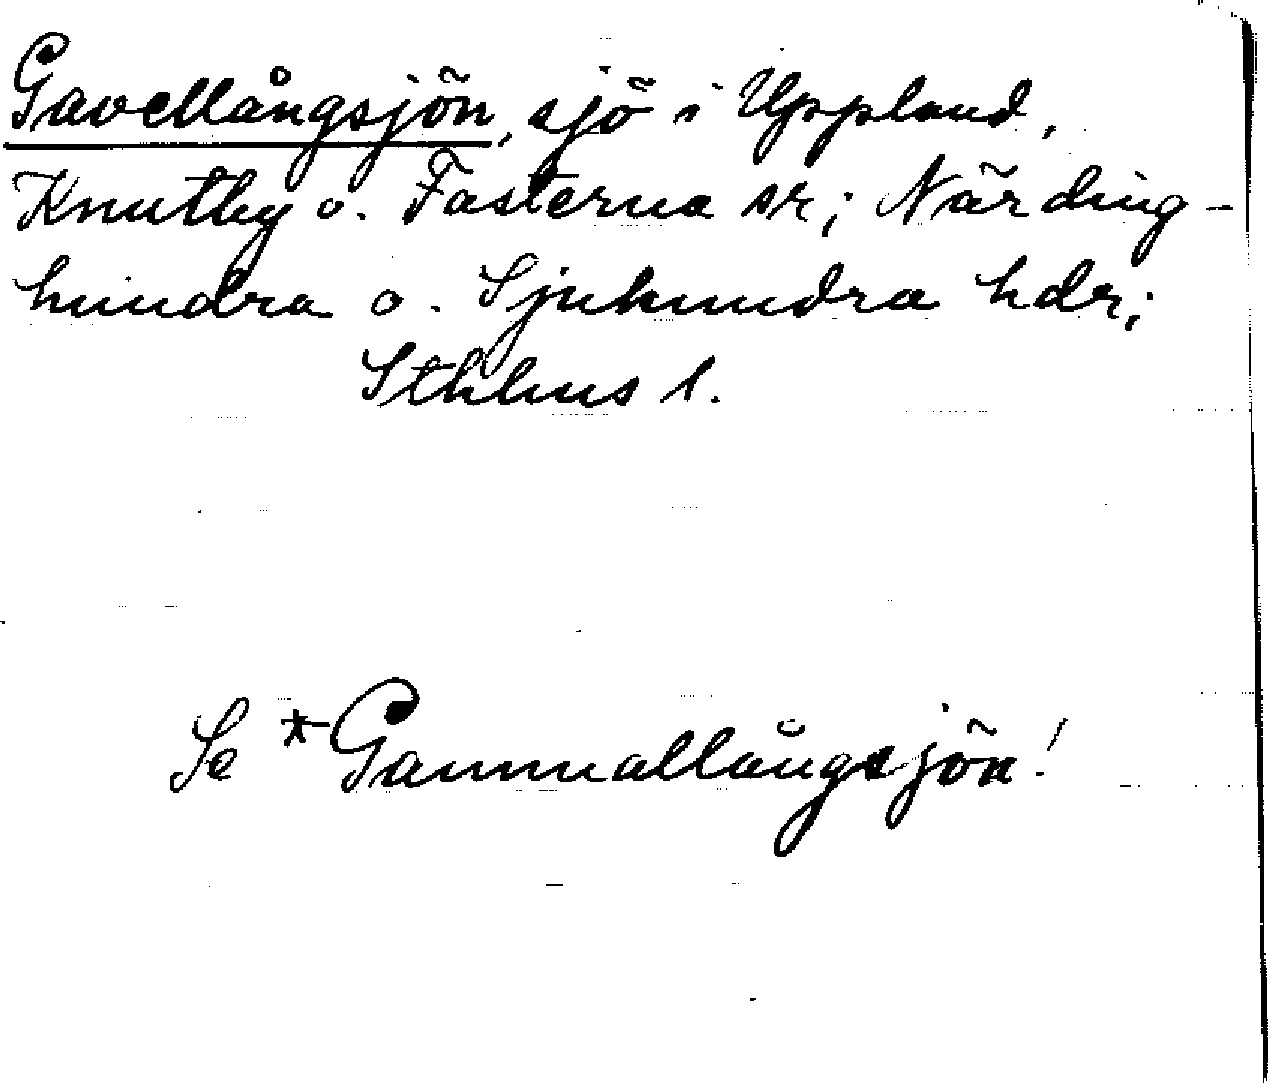 Gavellångsjön, sjö i Uppland,
Knutby o. Fasterna sr; Närding-
hundra o. Sjuhundra hdr;
Sthlms l.
Se *Gammallångsjön!